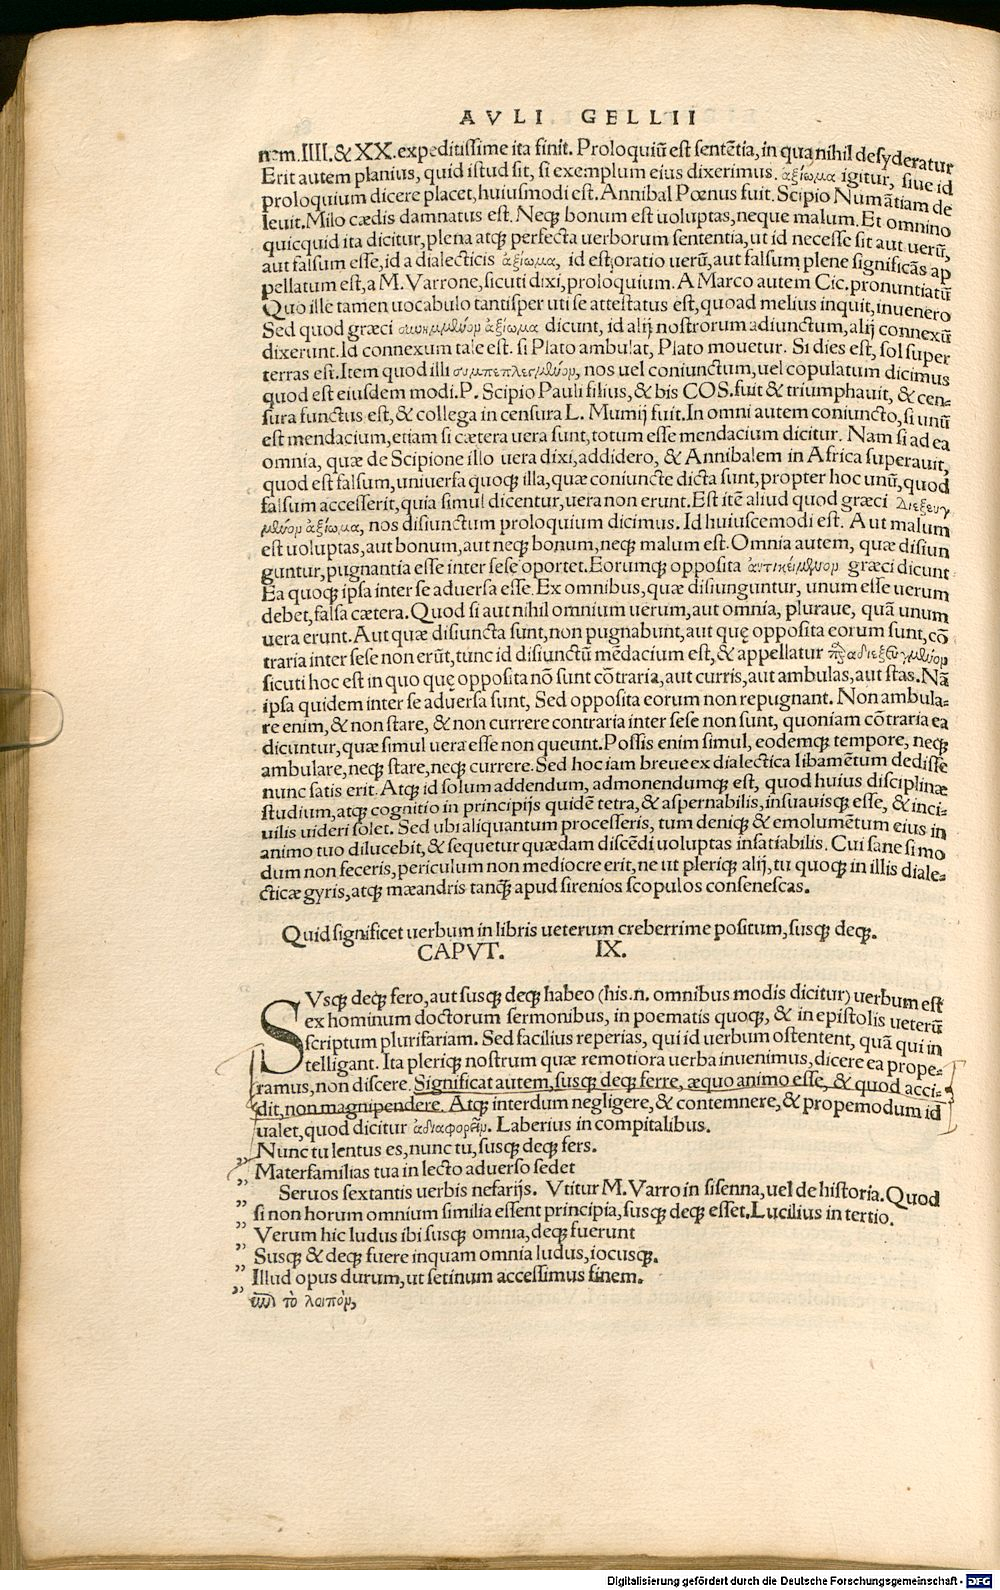 AVLI GELLII
nem.IIII.& XX.expeditissime ita finit. Proloquiũ est sentẽtia, in qua nihil desyderatur
Erit autem planius, quid istud sit, si exemplum eius dixerimus. ἀξίωμα igitur, siue id
proloquium dicere placet, huiusmodi est. Annibal Pœnus fuit. Scipio Numãtiam de
leuit. Milo cædis damnatus est. Neq; bonum est uoluptas, neque malum. Et omnino
quicquid ita dicitur, plena atq; perfecta uerborum sententia, ut id necesse sit aut uerũ,
aut falsum esse, id a dialecticis ἀξίωμα, id est, oratio uerũ, aut falsum plene significãs ap
pellatum est, a M. Varrone, sicuti dixi, proloquium. A Marco autem Cic. pronuntiatũ
Quo ille tamen uocabulo tantisper uti se attestatus est, quoad melius inquit, inuenero
Sed quod græci συνημμένον ἀξίωμα dicunt, id alij nostrorum adiunctum, alij connexũ
dixerunt. Id connexum tale est. si Plato ambulat, Plato mouetur. Si dies est, sol super
terras est. Item quod illi συμπεπλεγμένον, nos uel coniunctum, uel copulatum dicimus
quod est eiusdem modi. P. Scipio Pauli filius, & bis COS. fuit & triumphauit, & cen-
sura functus est, & collega in censura L. Mumij fuit. In omni autem coniuncto, si unũ
est mendacium, etiam si cætera uera sunt, totum esse mendacium dicitur. Nam si ad ea
omnia, quæ de Scipione illo uera dixi, addidero, & Annibalem in Africa superauit,
quod est falsum, uniuersa quoq; illa, quæ coniuncte dicta sunt, propter hoc unũ, quod
falsum accesserit, quia simul dicentur, uera non erunt. Est itẽ aliud quod græci διεζευγ
μένον ἀξίωμα, nos disiunctum proloquium dicimus. Id huiuscemodi est. Aut malum
est uoluptas, aut bonum, aut neq; bonum, neq; malum est. Omnia autem, quæ disiun
guntur, pugnantia esse inter sese oportet. Eorumq; opposita ἀντικείμενον græci dicunt
Ea quoq; ipsa inter se aduersa esse. Ex omnibus, quæ disiunguntur, unum esse uerum
debet, falsa cætera. Quod si aut nihil omnium uerum, aut omnia, pluraue, quã unum
uera erunt. Aut quæ disiuncta sunt, non pugnabunt, aut quę opposita eorum sunt, cõ
traria inter sese non erũt, tunc id disiunctũ mẽdacium est, & appellatur παραδιεζευγμένον
sicuti hoc est in quo quę opposita nõ sunt cõtraria, aut curris, aut ambulas, aut stas. Nã
ipsa quidem inter se aduersa sunt, Sed opposita eorum non repugnant. Non ambula-
re enim, & non stare, & non currere contraria inter sese non sunt, quoniam cõtraria ea
dicuntur, quæ simul uera esse non queunt. Possis enim simul, eodemq; tempore, neq;
ambulare, neq; stare, neq; currere. Sed hoc iam breue ex dialectica libamẽtum dedisse
nunc satis erit. Atq; id solum addendum, admonendumq; est, quod huius disciplinæ
studium, atq; cognitio in principijs quidẽ tetra, & aspernabilis, insuauisq; esse, & inci-
uilis uideri solet. Sed ubi aliquantum processeris, tum deniq; & emolumẽtum eius in
animo tuo dilucebit, & sequetur quædam discẽdi uoluptas insatiabilis. Cui sane si mo
dum non feceris, periculum non mediocre erit, ne ut pleriq; alij, tu quoq; in illis diale-
cticæ gyris, atq; mæandris tanq̃ apud sirenios scopulos consenescas.
Quid significet uerbum in libris ueterum creberrime positum, susq; deq;.
CAPVT. IX.
SVsq; deq; fero, aut susq; deq; habeo (his.n. omnibus modis dicitur) uerbum est
ex hominum doctorum sermonibus, in poematis quoq;, & in epistolis ueterũ
scriptum plurifariam. Sed facilius reperias, qui id uerbum ostentent, quã qui in
telligant. Ita pleriq; nostrum quæ remotiora uerba inuenimus, dicere ea prope-
ramus, non discere. Significat autem, susq; deq; ferre, æquo animo esse, & quod acci-
dit, non magnipendere. Atq; interdum negligere, & contemnere, & propemodum id
ualet, quod dicitur ἀδιαφορεῖν. Laberius in compitalibus.
Nunc tu lentus es, nunc tu, susq; deq; fers.
„ Materfamilias tua in lecto aduerso sedet
„ Seruos sextantis uerbis nefarijs. Vtitur M. Varro in sisenna, uel de historia. Quod
„ si non horum omnium similia essent principia, susq; deq; esset. Lucilius in tertio.
„ Verum hic ludus ibi susq; omnia, deq; fuerunt
„ Susq; & deq; fuere inquam omnia ludus, iocusq;.
„ Illud opus durum, ut setinum accessimus finem.
„ ἐπὶ τὸ λοιπόν,
Digitalisierung gefördert durch die Deutsche Forschungsgemeinschaft - DFG